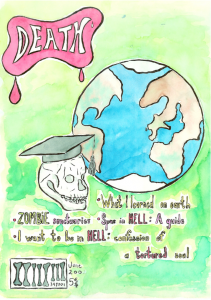 DEATH
•What I learned on earth
•ZOMBIE sanctuaries •Spas in HELL: A guide
•I want to be in HELL: confessions of
a tortured soul
June